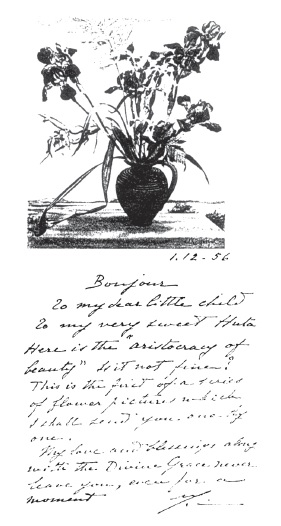 1.12-56
Bonjour
To my dear little child
To my very sweet Huta
Here is the "aristocracy of
beauty" Is it not fine?
This is the first of a series
of flower pictures which
I shall send you one by
one.
My love and blessings along
with the Divine Grace never
leave you, even for a
moment